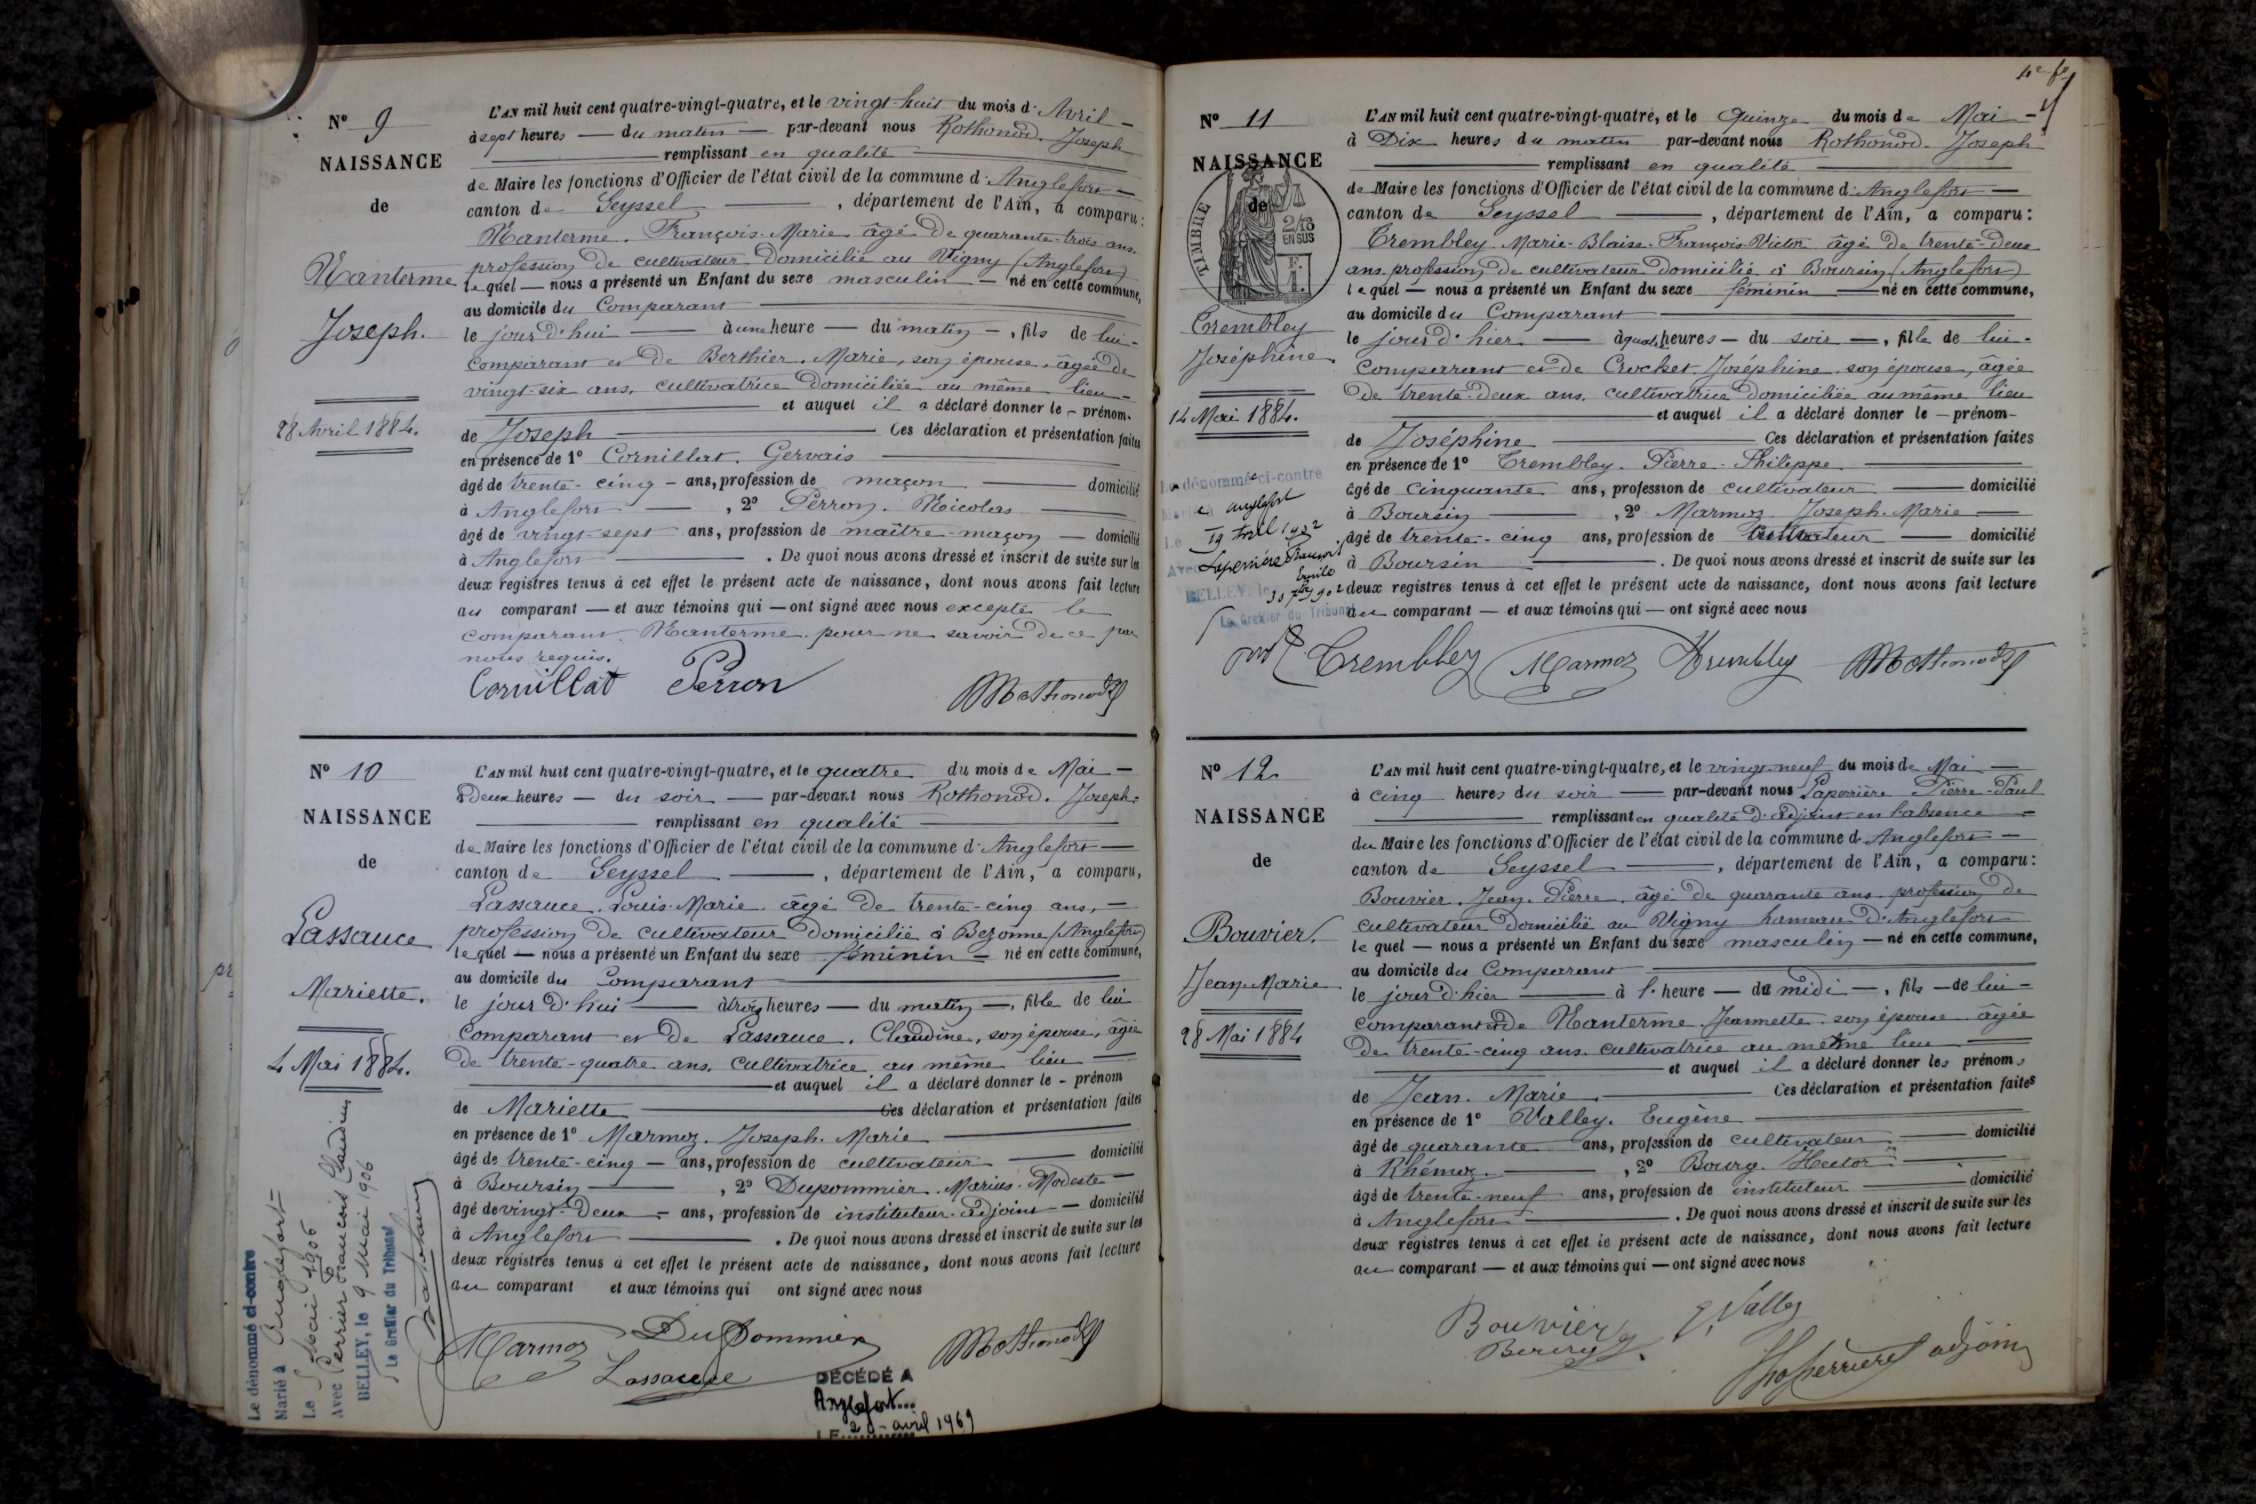 N° 9
NAISSANCE
de
Nanterme
Joseph.
28 Avril 1884.
L'AN mil huit cent quatre-vingt-quatre, et le vingt-huit du mois d' Avril
à sept heures du matin par-devant nous Rothonod. Joseph
remplissant en qualité
de Maire les fonctions d'Officier de l'état civil de la commune d' Anglefort
canton de Seyssel, département de l'Ain, a comparu:
Nanterme. François-Marie âgé de quarante-trois ans.
profession de cultivateur domicilié au Vigny (Anglefort)
lequel nous a présenté un Enfant du sexe masculin né en cette commune,
au domicile du Comparant
le jour d'hui à une heure du matin, fils de lui-
comparant et de Berthier. Marie, son épouse, âgée de
vingt-six ans, cultivatrice domiciliée au même lieu
et auquel il a déclaré donner le prénom
de Joseph Ces déclaration et présentation faites
en présence de 1° Cornillat. Gervais
âgé de trente-cinq ans, profession de maçon domicilié
à Anglefort, 2° Perron. Nicolas
âgé de vingt-sept ans, profession de maître-maçon domicilié
à Anglefort. De quoi nous avons dressé et inscrit de suite sur les
deux registres tenus à cet effet le présent acte de naissance, dont nous avons fait lecture
au comparant et aux témoins qui ont signé avec nous excepté le
comparant Nanterme pour ne savoir de ce par
nous requis.
Cornillat Perron Rothonod
N° 10
NAISSANCE
de
Lassauce
Mariette.
4 Mai 1884.
Le dénommé ci-contre
Marié à Anglefort
Le 5 Mai 1906
Avec Perrier François Claudius
BELLEY, le 9 Mai 1906
Le Greffier du Tribunal
L'AN mil huit cent quatre-vingt-quatre, et le quatre du mois de Mai
à deux heures du soir par-devant nous Rothonod. Joseph
remplissant en qualité
de Maire les fonctions d'Officier de l'état civil de la commune d' Anglefort
canton de Seyssel, département de l'Ain, a comparu,
Lassauce. Louis-Marie âgé de trente-cinq ans,
profession de cultivateur domicilié à Bezonne (Anglefort)
lequel nous a présenté un Enfant du sexe féminin né en cette commune,
au domicile du Comparant
le jour d'hui à trois heures du matin, fille de lui
comparant et de Lassauce. Claudine, son épouse, âgée
de trente-quatre ans, cultivatrice au même lieu
et auquel il a déclaré donner le prénom
de Mariette Ces déclaration et présentation faites
en présence de 1° Marmoz. Joseph. Marie
âgé de trente-cinq ans, profession de cultivateur domicilié
à Boursin, 2° Dupommier. Marius. Modeste
âgé de vingt-deux ans, profession de instituteur-adjoint domicilié
à Anglefort. De quoi nous avons dressé et inscrit de suite sur les
deux registres tenus à cet effet le présent acte de naissance, dont nous avons fait lecture
au comparant et aux témoins qui ont signé avec nous
Marmoz Dupommier Rothonod
Lassauce
DÉCÉDÉ A
Anglefort
LE 20 avril 1969
N° 11
NAISSANCE
de
TIMBRE
2/10
EN SUS
F.
1.
Trembley
Joséphine.
14 Mai 1884.
Le dénommé ci-contre
a anglefort
Le 19 avril 1902
Avec
Emile
BELLEY, le 30 7bre 1902
Le Greffier du Tribunal
L'AN mil huit cent quatre-vingt-quatre, et le Quinze du mois de Mai
à Dix heures du matin par-devant nous Rothonod. Joseph
remplissant en qualité
de Maire les fonctions d'Officier de l'état civil de la commune d' Anglefort
canton de Seyssel, département de l'Ain, a comparu:
Trembley. Marie-Blaise-François-Victor âgé de trente-deux
ans profession de cultivateur domicilié à Boursin (Anglefort)
lequel nous a présenté un Enfant du sexe féminin né en cette commune,
au domicile du Comparant
le jour d'hier à quatre heures du soir, fille de lui-
comparant et de Crochet Joséphine son épouse, âgée
de trente-deux ans, cultivatrice domiciliée au même lieu
et auquel il a déclaré donner le prénom
de Joséphine Ces déclaration et présentation faites
en présence de 1° Trembley. Pierre. Philippe
âgé de cinquante ans, profession de cultivateur domicilié
à Boursin, 2° Marmoz. Joseph-Marie
âgé de trente-cinq ans, profession de cultivateur domicilié
à Boursin. De quoi nous avons dressé et inscrit de suite sur les
deux registres tenus à cet effet le présent acte de naissance, dont nous avons fait lecture
au comparant et aux témoins qui ont signé avec nous
Trembley Marmoz Trembley Rothonod
N° 12
NAISSANCE
de
Bouvier.
Jean-Marie
28 Mai 1884
L'AN mil huit cent quatre-vingt-quatre, et le vingt-neuf du mois de Mai
à cinq heures du soir par-devant nous Laperrière Pierre-Paul
remplissant en qualité d'adjoint en l'absence
du Maire les fonctions d'Officier de l'état civil de la commune d' Anglefort
canton de Seyssel, département de l'Ain, a comparu:
Bouvier. Jean-Pierre. âgé de quarante ans profession de
cultivateur domicilié au Vigny hameau d'Anglefort
lequel nous a présenté un Enfant du sexe masculin né en cette commune,
au domicile du Comparant
le jour d'hier à l'heure de midi, fils de lui-
comparant et de Nanterme Jeannette son épouse âgée
de trente-cinq ans cultivatrice au même lieu
et auquel il a déclaré donner les prénoms
de Jean. Marie. Ces déclaration et présentation faites
en présence de 1° Valley. Eugène
âgé de quarante ans, profession de cultivateur domicilié
à Rhémoz, 2° Bourg. Hector
âgé de trente-neuf ans, profession de instituteur domicilié
à Anglefort. De quoi nous avons dressé et inscrit de suite sur les
deux registres tenus à cet effet le présent acte de naissance, dont nous avons fait lecture
au comparant et aux témoins qui ont signé avec nous
Bouvier E. Valley
Bourg Laperrière adjoint